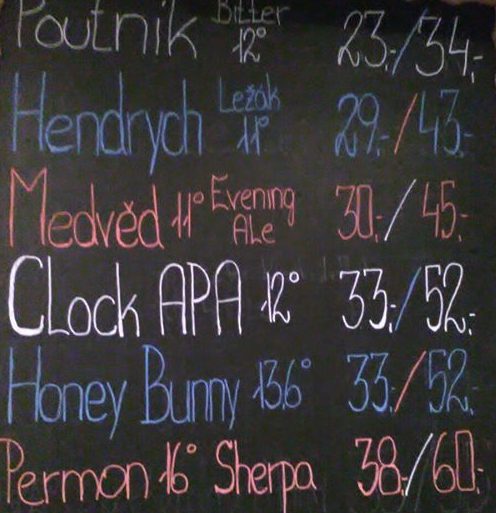 Poutník Bitter 12° 23,-/34,-
Hendrych Ležák 11° 29,-/43,-
Medvěd 11° Evening Ale 30,-/45,-
CLock APA 12° 33,-/52,-
Honey Bunny 13,6° 33,-/52,-
Permon 16° Sherpa 38,-/60,-